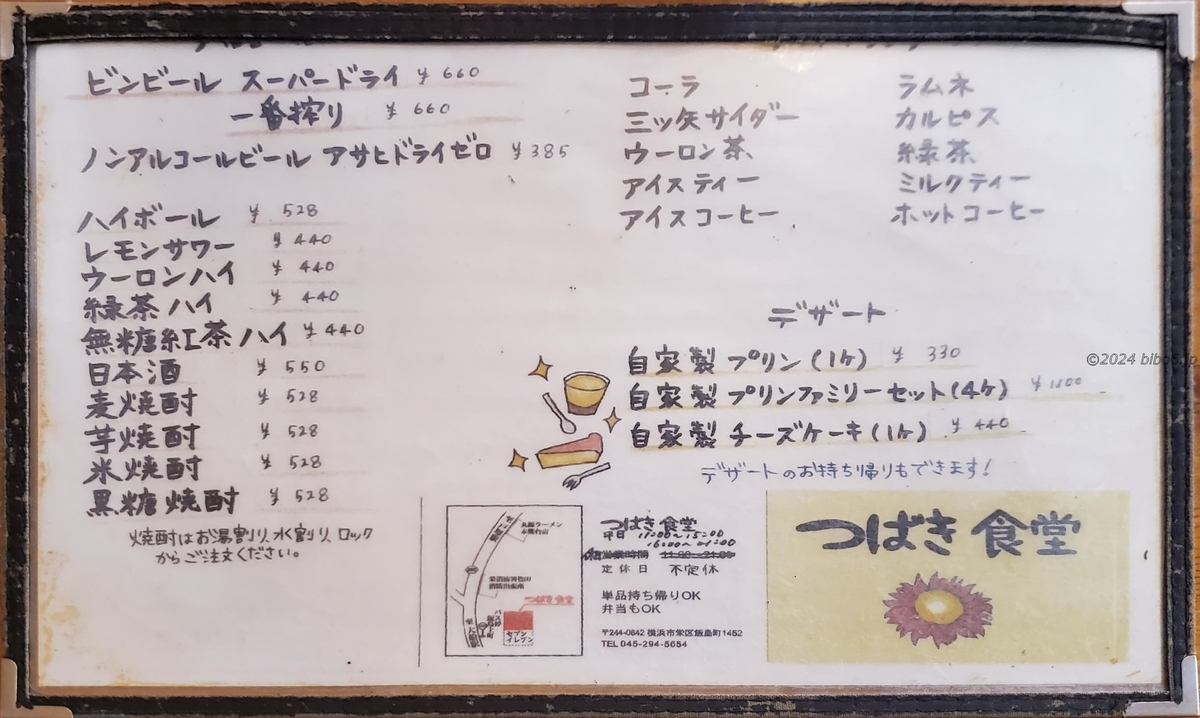 ビンビール スーパードライ ¥660
一番搾り ¥660
ノンアルコールビール アサヒドライゼロ ¥385
ハイボール ¥528
レモンサワー ¥440
ウーロンハイ ¥440
緑茶ハイ ¥440
無糖紅茶ハイ ¥440
日本酒 ¥550
麦焼酎 ¥528
芋焼酎 ¥528
米焼酎 ¥528
黒糖焼酎 ¥528
焼酎はお湯割り、水割り、ロック
からご注文ください。
コーラ
三ッ矢サイダー
ウーロン茶
アイスティー
アイスコーヒー
ラムネ
カルピス
緑茶
ミルクティー
ホットコーヒー
デザート
自家製プリン(1ヶ) ¥330
自家製プリンファミリーセット(4ヶ) ¥1100
自家製チーズケーキ(1ヶ) ¥440
デザートのお持ち帰りもできます!
つばき食堂
セブン
イレブン
つばき食堂
平日 11:00~15:00
16:00~21:00
営業時間 11:00~21:00
定休日 不定休
単品持ち帰りOK
弁当もOK
〒244-0842 横浜市栄区飯島町1452
TEL 045-294-5654
つばき食堂
©2024 bibo